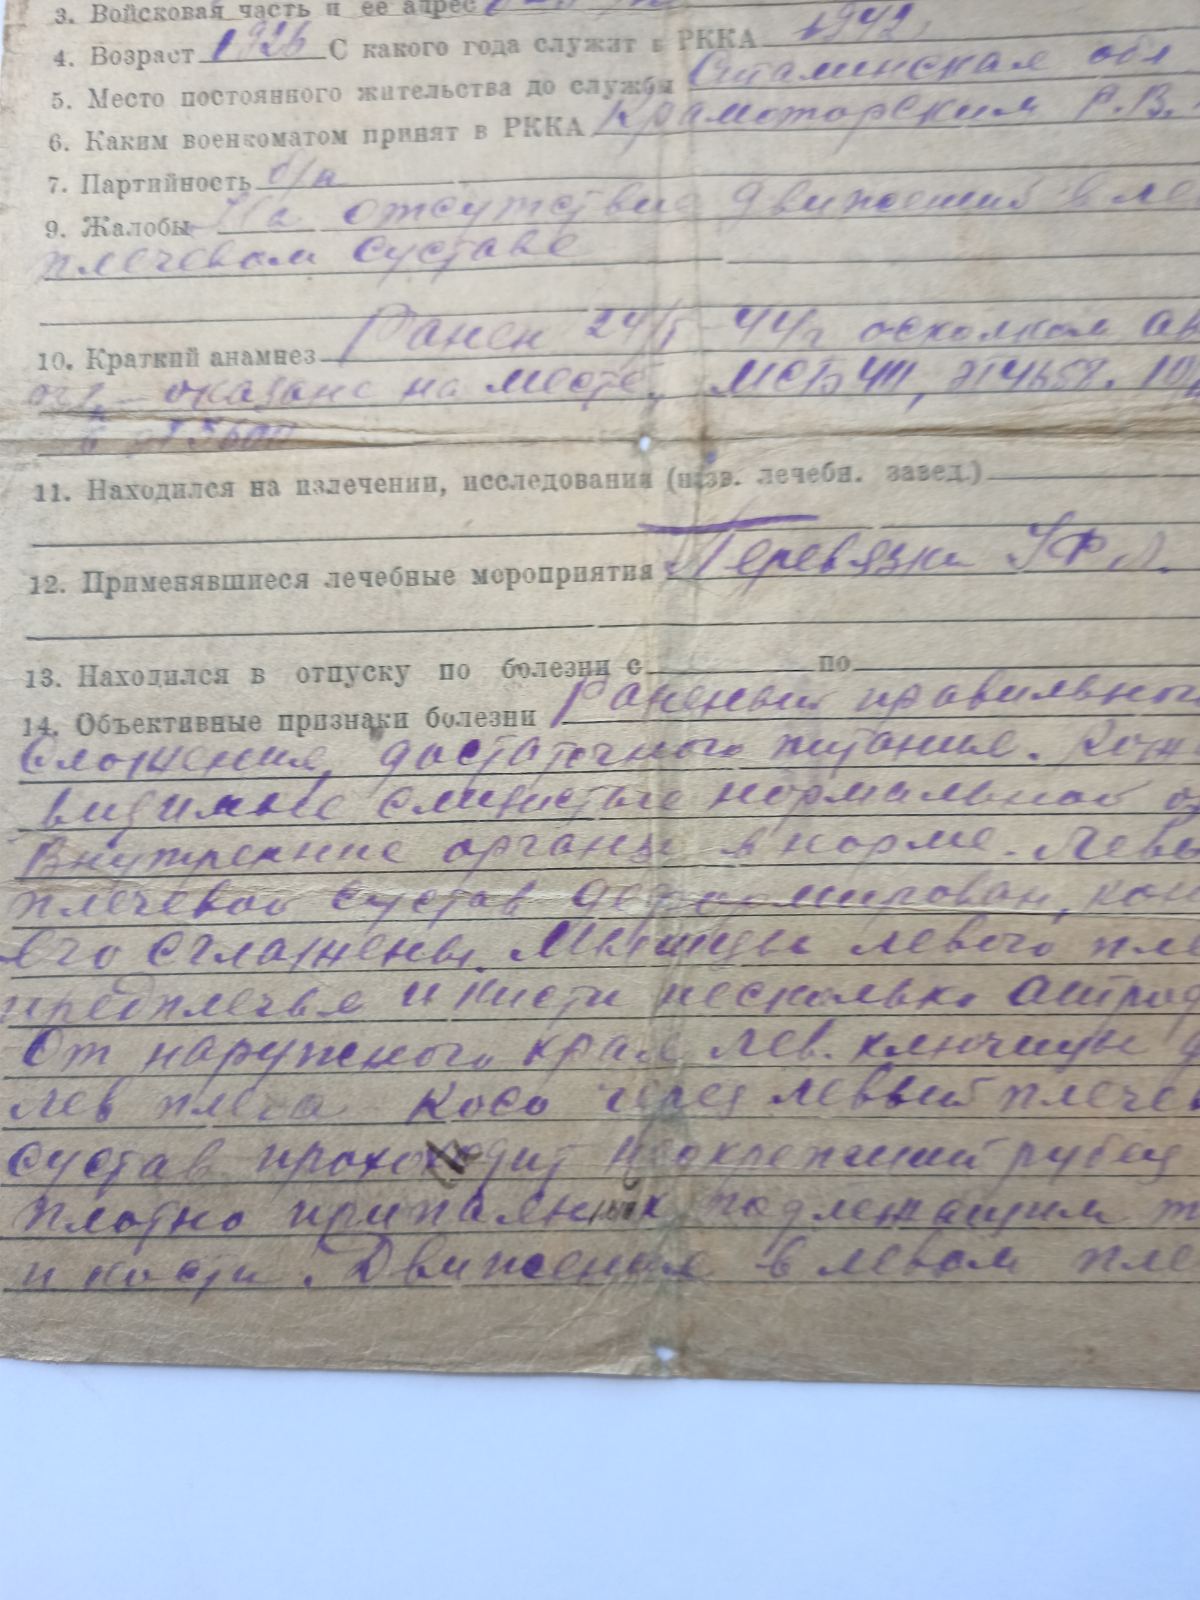 3. Войсковая часть и ее адрес
4. Возраст 1926 С какого года служит в РККА 1942
5. Место постоянного жительства до службы Сталинская обл
6. Каким военкоматом принят в РККА Краматорским Р.В.
7. Партийность б/п
9. Жалобы На отсутствие движений в ле
плечевом суставе
10. Краткий анамнез Ранен 24/ 44г осколком ав
оказана на месте, МСБ 411,
11. Находился на излечении, исследовании (назв. лечебн. завед.)
12. Применявшиеся лечебные мероприятия Перевязки УФЛ.
13. Находился в отпуску по болезни с по
14. Объективные признаки болезни Раненый правильног
сложения, достаточного питания. Кож
видимые слизистые нормальной о
Внутренние органы в норме. Левы
плечевой сустав деформирован, кон
его сглажены. Мышцы левого пле
предплечья и кисти несколько атроф
От наружного края лев. ключицы д
лев плеча косо через леввый плечев
сустав проходит неокрепший рубец
плотно припаянный к подлежащим т
и кости. Движения в левом пле